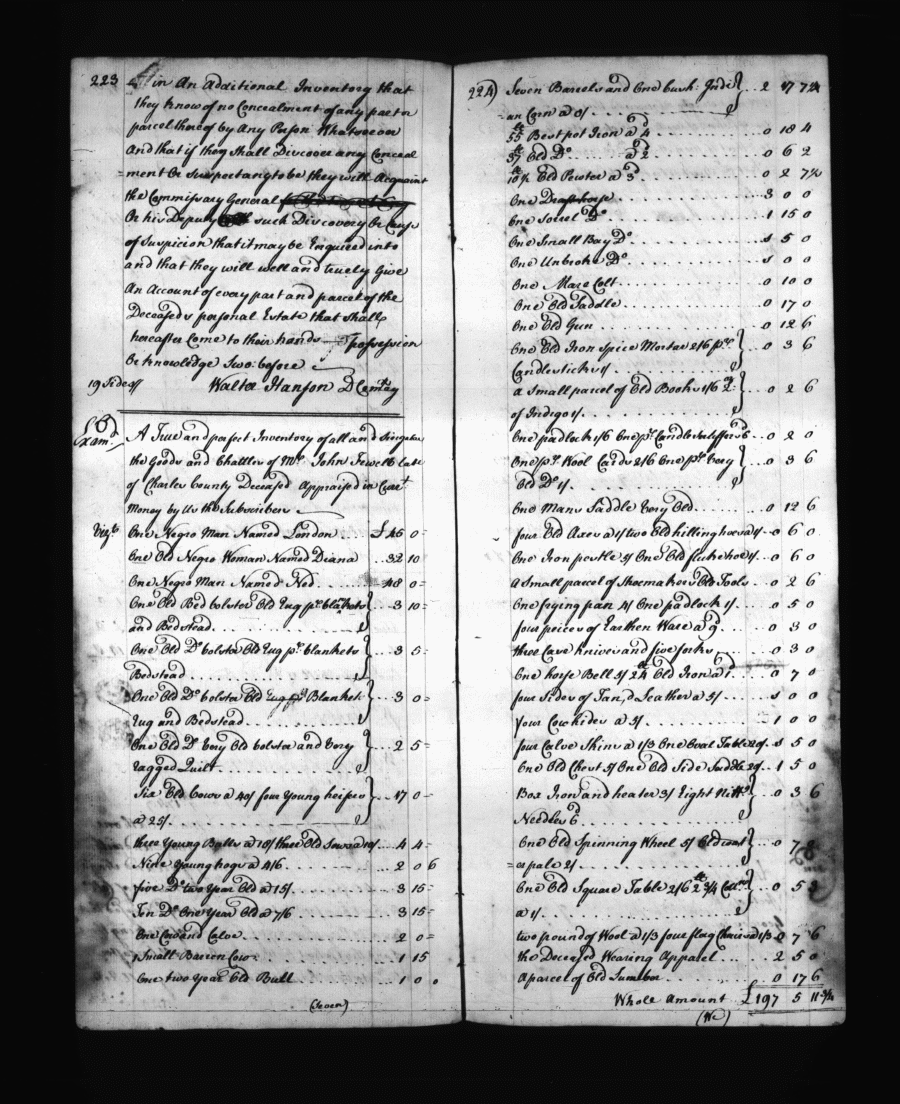 223
in An Additional Inventory that
they know of no Concealment of any part or
parcel thereof by Any Person Whatsoever
And that if they Shall Discover any Conceal
=ment Or Suspect any to be they will Acquaint
the Commissary General
Or his Deputy such Discovery Or Cause
of Suspicion that it may be Enquired into
and that they will well and truely Give
An Account of every part and parcel of the
Deceaseds personal Estate that Shall
hereafter Come to their hands possession
Or knowledge Swo: before
19 Sides // Walter Hanson D Com:ry
Exam.d
A True and perfect Inventory of all and Singular
the Goods and Chattles of Mr. John late
of Charles County Deceased Appraised in Curt.
Money by Us the Subscribers
Viz.t One Negro Man Named London . . . £45 0=
One Old Negro Woman Named Diana . . 32 10
One Negro Man Named Ned . . . 48 0=
One Old Bed bolster Old Rug pr. blankets
and Bedstead . . . 3 10=
One Old Do. bolster Old Rug pr. blankets
Bedstead . . . 3 5=
One Old Do. bolster Old Blanket
Rug and Bedstead . . . 3 0=
One Old Do. Very Old bolster and Very
ragged Quilt . . . 2 5=
Six Old Cows a 40/ four Young heifers
a 25/ . . . 17 0=
three Young Bulls a 18/ three Old Sows a 10/ . . 4 4=
Nine Young hogs a 4/6 . . . 2 0 6
five Do. two Year Old a 15/ . . . 3 15=
Ten Do. One Year Old a 7/6 . . . 3 15=
One Cow and Calve . . . 2 0=
1 Small Barren Cow . . . 1 15
One two Year Old Bull . . . 1 0 0
(Seven)
224)
Seven Barrels and One bush: Indi
=an Corn a 8/ . . . 2 17 7½
55 lb Best pot Iron a 4d . . . 0 18 4
37 lb Old Do. . . . a 2d . . . 0 6 2
10½ lb Old Pewter a 3d . . . 0 2 7½
One Draft horse . . . 3 0 0
One Sorrel Do. . . . 1 15 0
One Small Bay Do. . . . 5 0
One Unbroke Do. . . . 0 0
One Mare Colt . . . 0 10 0
One Old Saddle . . . 0 17 0
One Old Gun . . . 0 12 6
One Old Iron Spice Mortar 2/6 pr.
Candlesticks 1/ . . . 0 3 6
a Small parcel of Old Books 1/6 2 oz
of Indigo 1/ . . . 0 2 6
One padlock 1/6 One pr. Candle 6d . . 0 2 0
One pr. Wool Cards 2/6 One pr. Very
Old Do. 1/ . . . 0 3 6
One Mans Saddle Very Old . . . 0 12 6
four Old Axes a 1/ two Old hilling hoes a 1/ . . 0 6 0
One Iron pestle 5/ One Old fluke hoe 1/ . . 0 6 0
a Small parcel of Shoemakers Old Tools . . 0 2 6
One frying pan 4/ One padlock 1/ . . . 0 5 0
four peices of Earthen Ware a 9d . . . 0 3 0
three Case knives and five forks . . . 0 3 0
One horse Bell 5/ 24 lb Old Iron a 1d . . . 0 7 0
four Sides of Tan'd Leather a 5/ . . . 0 0
four Cowhides a 5/ . . . 1 0 0
four Calve Skins a 1/3 One Oval Table 20/ . . 5 0
One Old Chest 5/ One Old Side Saddle 20/ . . 1 5 0
Box Iron and heater 3/ Eight Nitt.g
Needles 6d . . . 0 3 6
One Old Spinning Wheel 5/ Old
=er pale 2/ . . . 0 7
One Old Square Table 2/6 2¾ lb Cott.n
a 1/ . . . 0 5 3
two pound of Wool a 1/3 four flag Chairs a 1/3 . 0 7 6
the Deceased Wearing Apparel . . . 2 5 0
A parcel of Old Lumber . . . 0 17 6
Whole Amount £197 5 11¾
(We)